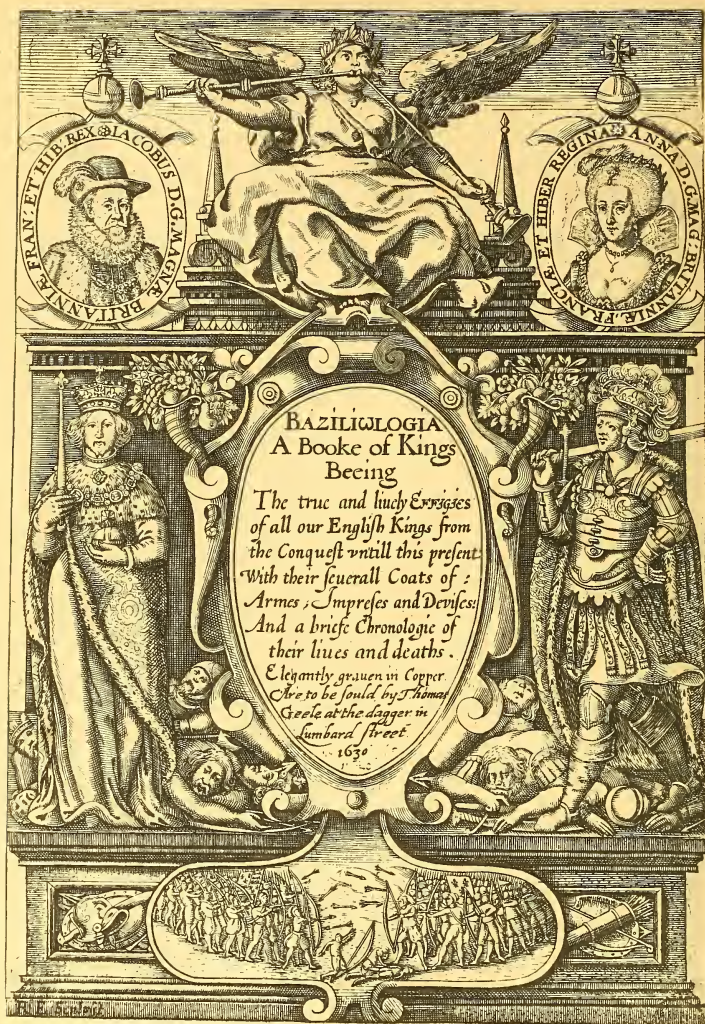 IACOBUS D.G. MAGNÆ BRITANNIÆ FRAN: ET HIB: REX
ANNA D.G. MAG: BRITANNIÆ, FRANCIÆ ET HIBER: REGINA
BAZILIωLOGIA
A Booke of Kings
Beeing
The true and liuely Effigies
of all our Engliſh Kings from
the Conqueſt vntill this preſent:
With their ſeuerall Coats of :
Armes ; Impreſes and Deviſes:
And a briefe Chronologie of
their liues and deaths .
Elegantly grauen in Copper
Are to be ſould by Thomas
Geele at the dagger in
Lumbard ſtreet
1630